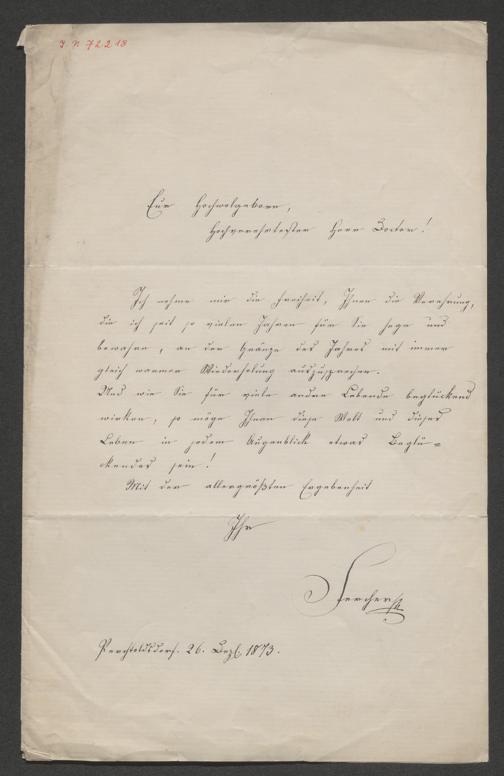 I N 72218
Eur Hochwolgeboren,
Hochverehrtester Herr Doctor!
Ich nehme mir die Freiheit, Ihnen die Verehrung,
die ich seit so vielen Jahren für Sie hege und
bewahre, an der Gränze des Jahres mit immer
gleich warmer Wiederholung auszusprechen.
Und wie Sie für viele andre Lebende beglückend
wirken, so möge Ihnen diese Welt und dieses
Leben in jedem Augenblick etwas Beglü=
ckendes sein!
Mit der allergrößten Ergebenheit
Ihr
Fercher
Perchtoldsdorf. 26. Dez. 1873.